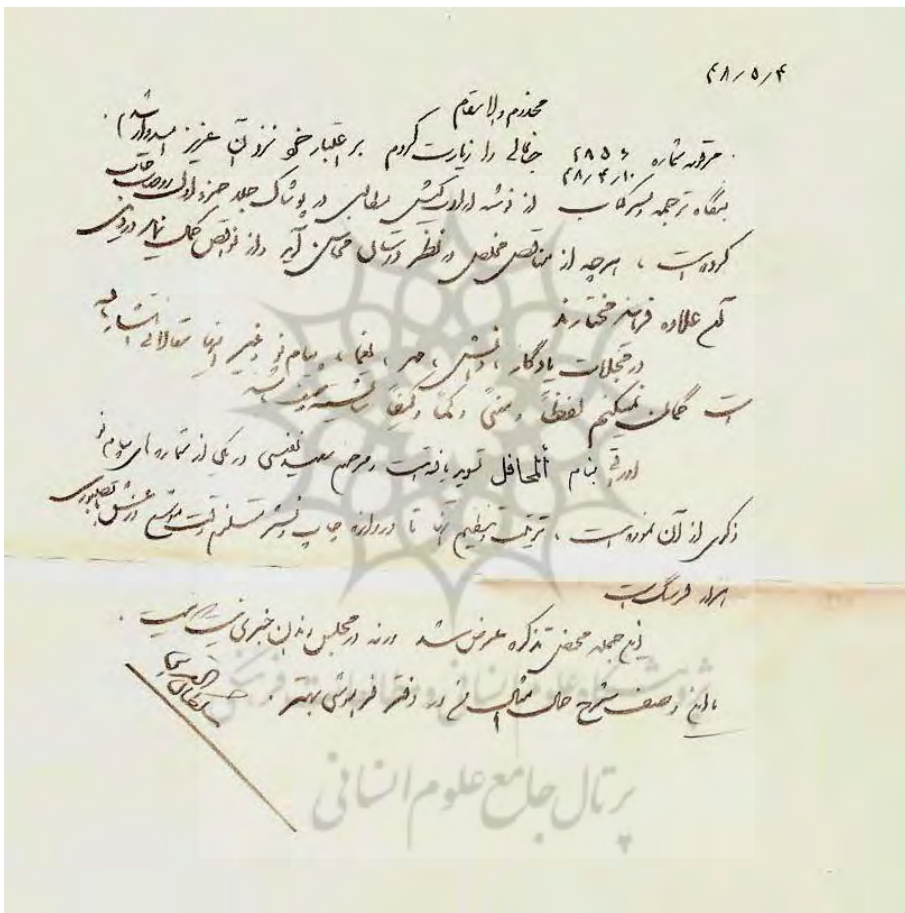 ۴۸/۵/۴
مخدوم والامقام
مرقومه شماره ۲۸۵۶ جنابعالی را زیارت کردم بر اعتبار خود نزد آن عزیز امیدوار شدم.
۴۸/۴/۱۰
بنگاه ترجمه و نشر کتاب از نوشته ارادت‌کیش مطالبی در پوشاک جلد جزو اول و دوم چاپ
کرده است، هرچه از مناقص مخلص در نظر دوستان محاسن آید و از نواقص کمال نماید
آنچ علاوه فرمایند مختارند
در مجلات یادگار، دانش، مهر، یغما، پیام نو و غیر اینها مقالاتی انتشار یافته
است گمان نمیکنم لفظاً و معنیً و کماً و کیفاً شایسته توصیف باشد
اوراقی بنام المحافل تسوید یافته است و مرحوم سعید نفیسی در یکی از شماره های پیام نو
ذکری از آن نموده است، ترتیب و تنظیم آنها تا دروازه چاپ و نشر مستلزم وقت موسع و
ابزار فرهنگ است
این جمله محض تذکره عرض شد ورنه در مجلس رندان خبری نیست که نیست.
با این وصف شرح حال امثال من در دفتر فراموشی بهتر.
سلطان القرائی
پژوهشگاه علوم انسانی و مطالعات فرهنگی
پرتال جامع علوم انسانی